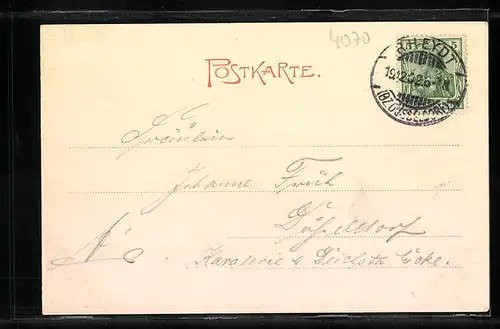 4070
POSTKARTE.
RHEYDT
19.12.02.5-
(BZ.DÜSSELDORF)
5
Fräulein
Johanne Früh
Düsseldorf
Kavalerie & Reichstr Ecke.